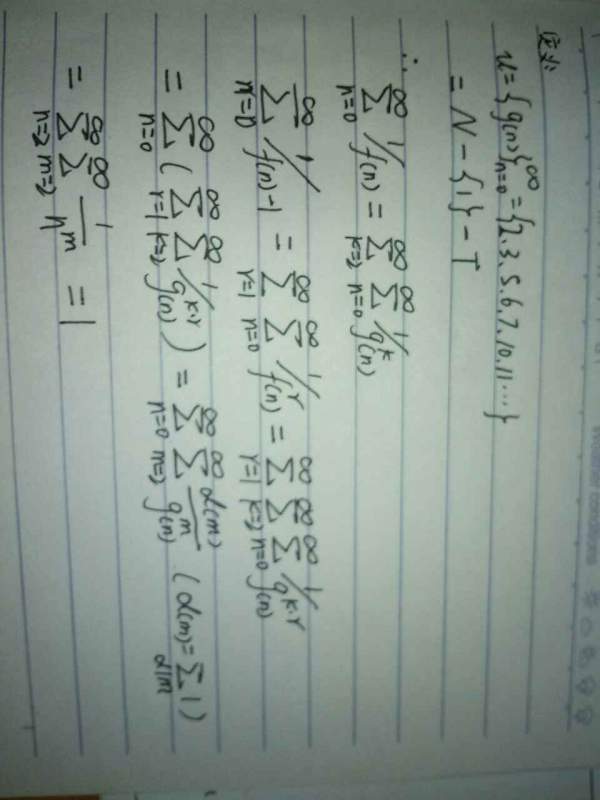 定义
u={g(n)}_{n=0}^{∞}={2.3.5.6.7.10.11…}
=N-{1}-T
∴ \sum_{n=0}^{∞} 1/f(n) = \sum_{k=2}^{∞} \sum_{n=0}^{∞} 1/g^{k}(n)
\sum_{n=0}^{∞} 1/f(n)-1 = \sum_{r=1}^{∞} \sum_{n=0}^{∞} 1/f^{r}(n) = \sum_{r=1}^{∞} \sum_{k=2}^{∞} \sum_{n=0}^{∞} 1/g^{k·r}(n)
= \sum_{n=0}^{∞} ( \sum_{r=1}^{∞} \sum_{k=2}^{∞} 1/g^{k·r}(n) ) = \sum_{n=0}^{∞} \sum_{m=2}^{∞} α(m)/g^{m}(n) (α(m)=\sum_{d|m} 1)
= \sum_{n=2}^{∞} \sum_{m=2}^{∞} 1/n^{m} = 1